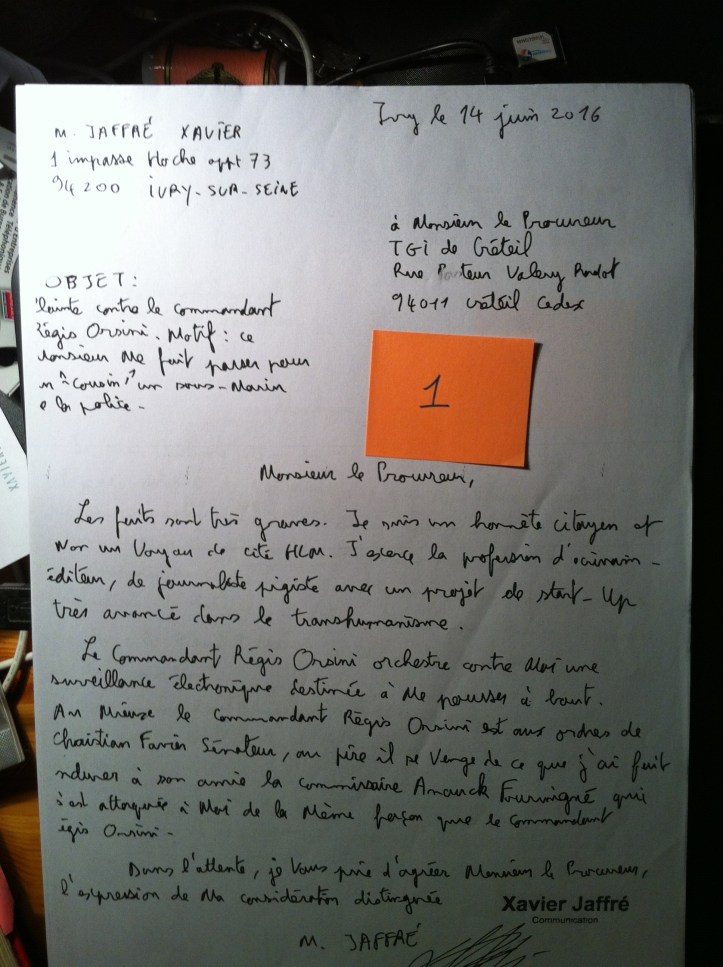 Ivry le 14 juin 2016
M. JAFFRÉ XAVIER
1 impasse Hoche appt 73
94200 IVRY-SUR-SEINE
à Monsieur le Procureur
TGI de Créteil
Rue Pasteur Valery Radot
94011 Créteil Cedex
OBJET:
plainte contre le commandant
Régis Orsini. Motif: ce
Monsieur me fait passer pour
un "Cousin" un sous-Marin
de la police-
1
Monsieur le Procureur,
Les faits sont très graves. Je suis un honnête citoyen et
Non un Voyou de cité HLM. J'exerce la profession d'écrivain-
éditeur, de journaliste pigiste avec un projet de start-Up
très avancé dans le transhumanisme.
Le Commandant Régis Orsini orchestre contre Moi une
surveillance électronique destinée à Me pousser à bout.
Au Mieux le Commandant Régis Orsini est aux ordres de
Christian Favier Sénateur, au pire il se Venge de ce que j'ai fait
endurer à son amie la commissaire Anouck Fourmigué qui
s'est attaquée à Moi de la Même façon que le Commandant
Régis Orsini-
Dans l'attente, je Vous prie d'agréer Monsieur le Procureur,
l'expression de Ma considération distinguée
Xavier Jaffré
Communication
M. JAFFRÉ